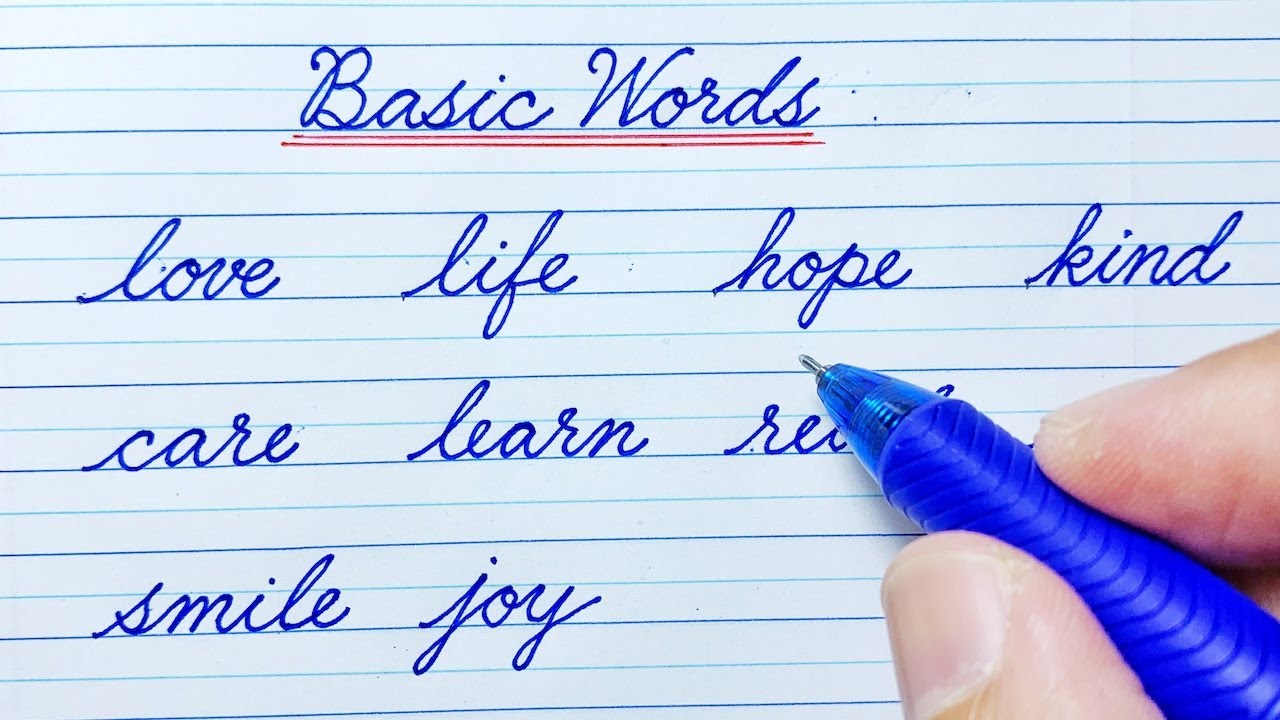 Basic Words
love life hope kind
care learn
smile joy